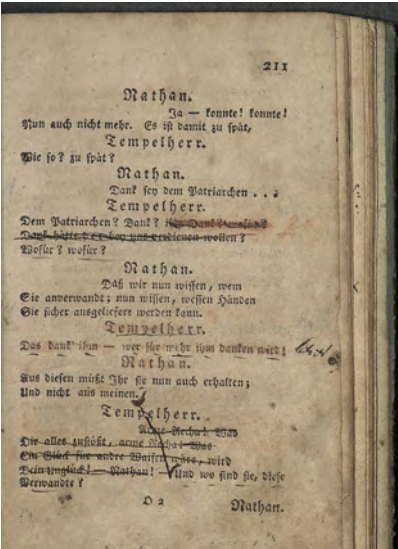 211
Nathan.
Ja — konnte! konnte!
Nun auch nicht mehr. Es ist damit zu spät,
Tempelherr.
Wie so? zu spät?
Nathan.
Dank sey dem Patriarchen . . .
Tempelherr.
Dem Patriarchen? Dank? ihm Dank? wofür?
Dank hätte der bey uns verdienen wollen?
Wofür? wofür?
Nathan.
Daß wir nun wissen, wem
Sie anverwandt; nun wissen, wessen Händen
Sie sicher ausgeliefert werden kann.
Tempelherr.
Das dank' ihm — wer für mehr ihm danken wird!
Nathan.
Aus diesen müßt Ihr sie nun auch erhalten;
Und nicht aus meinen.
Tempelherr.
Arme Recha! Was
Dir alles zustößt, arme Recha! Was
Ein Glück für andre Waisen wäre, wird
Dein Unglück! — Nathan! — Und wo sind sie, diese
Verwandte?
O 2
Nathan.